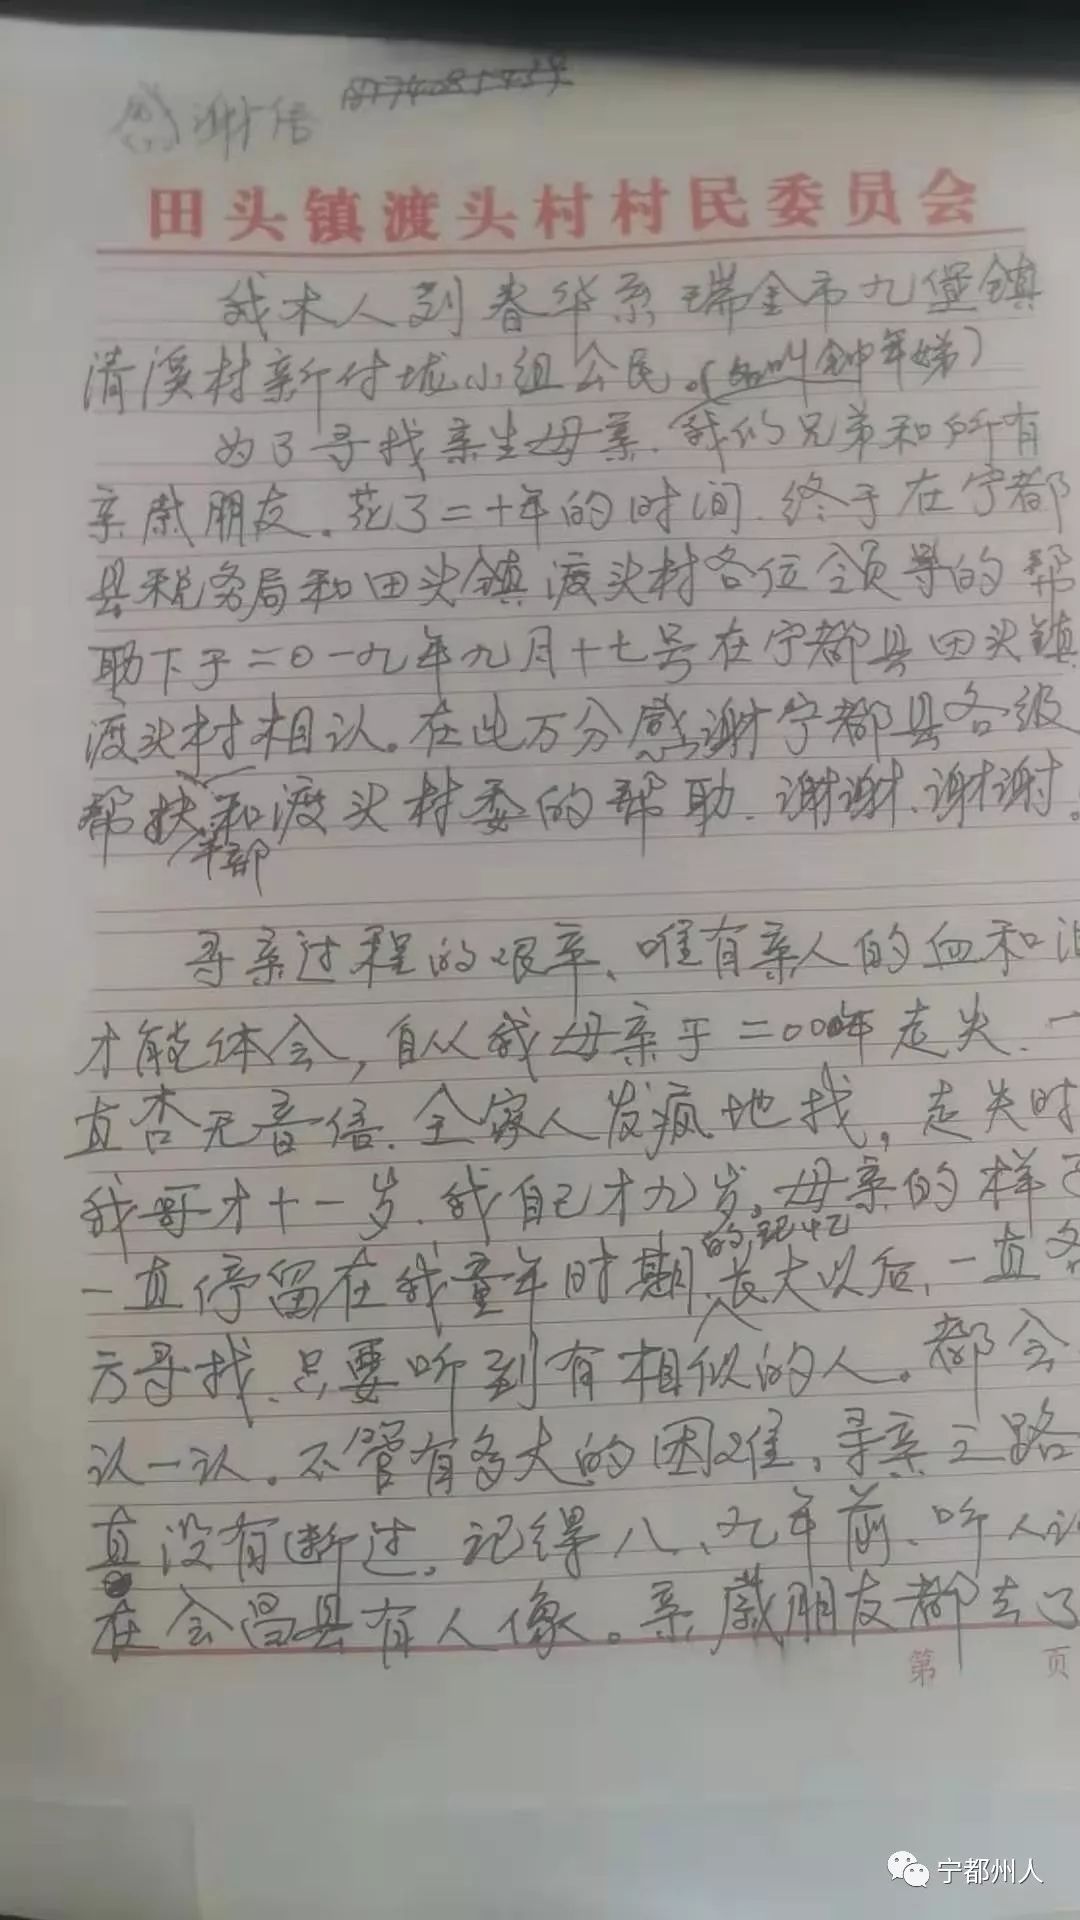 感谢信
田头镇渡头村村民委员会
我本人刘春华系瑞金市九堡镇
清溪村新付垅小组公民。(名叫钟年娣)
为了寻找亲生母亲.我的兄弟和所有
亲戚朋友.花了二十年的时间.终于在宁都
县税务局和田头镇渡头村各位领导的帮
助下于二0一九年九月十七号在宁都县田头镇
渡头村相认。在此万分感谢宁都县各级
帮扶干部和渡头村委的帮助.谢谢.谢谢。
寻亲过程的艰辛、唯有亲人的血和泪
才能体会,自从我母亲于二000年走失.一
直杳无音信.全家人发疯地找,走失时
我哥才十一岁.我自己才九岁。母亲的样子
一直停留在我童年时期的记忆.长大以后、一直多
方寻找.只要听到有相似的人。都会
认一认。不管有多大的困难,寻亲之路
直没有断过。记得八、九年前.听人说
在会昌县有人像。亲戚朋友都去了
第 页
宁都州人